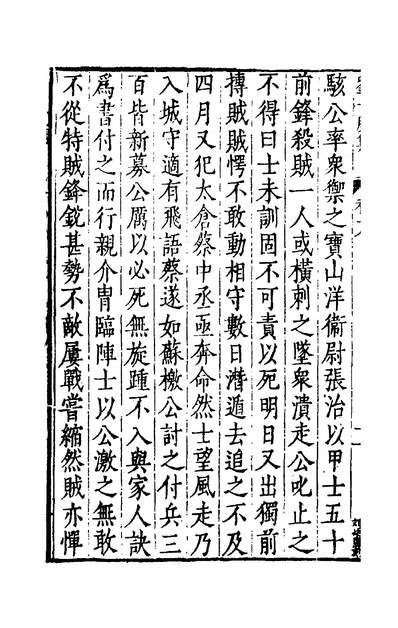 駭公率衆禦之寶山洋衞尉張治以甲士五十
前鋒殺賊一人或横刺之墜衆潰走公叱止之
不得曰士未訓固不可責以死明日又出獨前
搏賊賊愕不敢動相守數日潛遁去追之不及
四月又犯太倉蔡中丞亟奔命然士望風走乃
入城守適有飛語蔡遂如蘇檄公討之付兵三
百皆新募公厲以必死無旋踵不入與家人訣
爲書付之而行親介胄臨陣士以公激之無敢
不從特賊鋒銳甚勢不敵屢戰嘗縮然賊亦憚